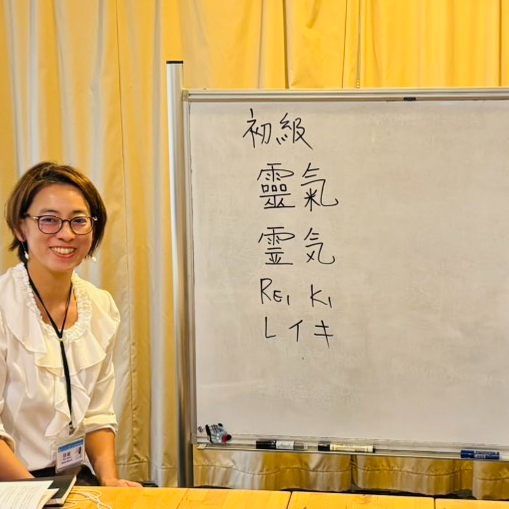 初級
靈氣
霊気
REI KI
レイキ